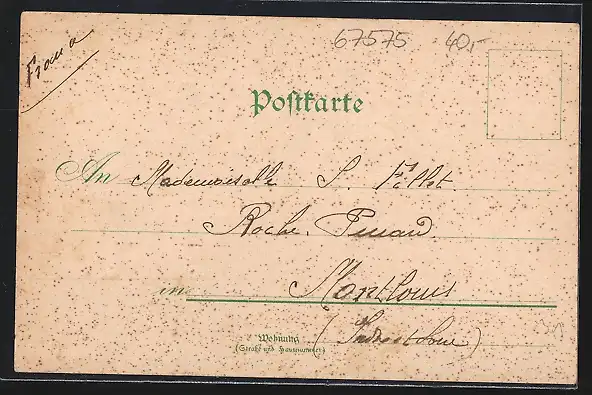 Franca
67575 40,-
Postkarte
An Mademoiselle S. Fillet
Roche Pinard
in Montlouis
Wohnung (Indre et Loire)
(Straße und Hausnummer)